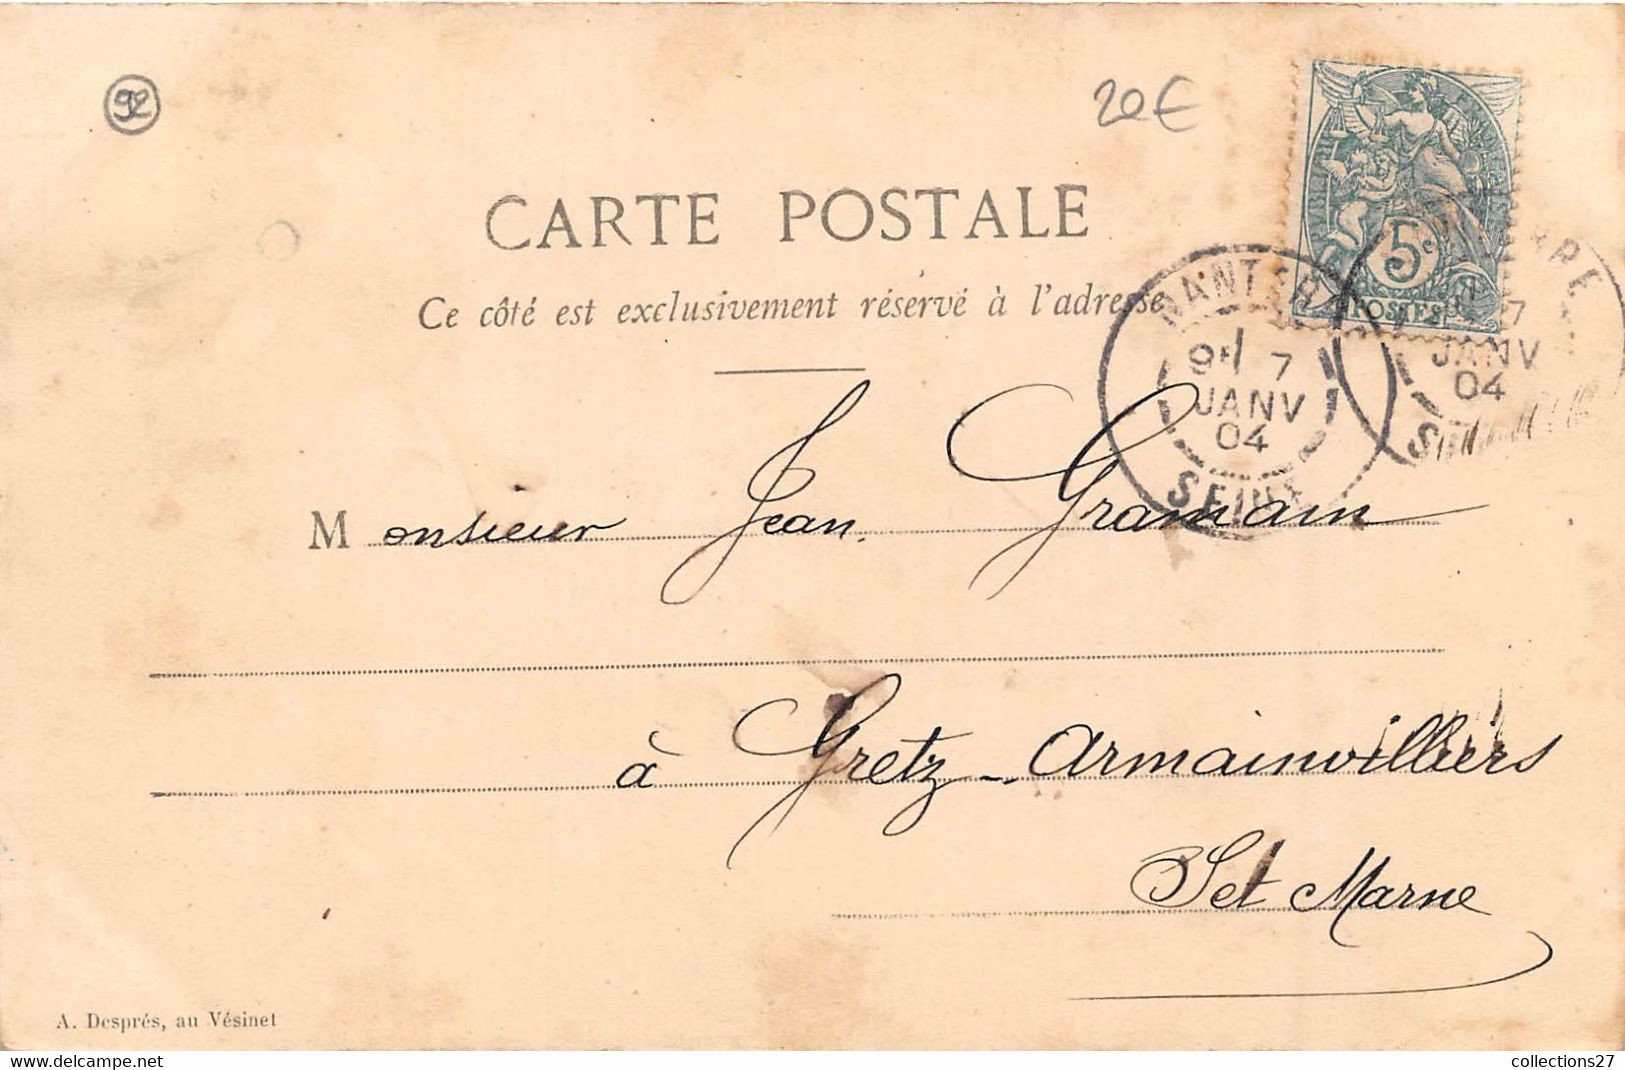 92
20€
CARTE POSTALE
Ce côté est exclusivement réservé à l'adresse
5c
POSTES
NANTERRE
9E 7
JANV
04
SEINE
7
JANV
04
Monsieur Jean Gramain
à Gretz-Armainvilliers
S et Marne
A. Després, au Vésinet
delcampe.net
collections27